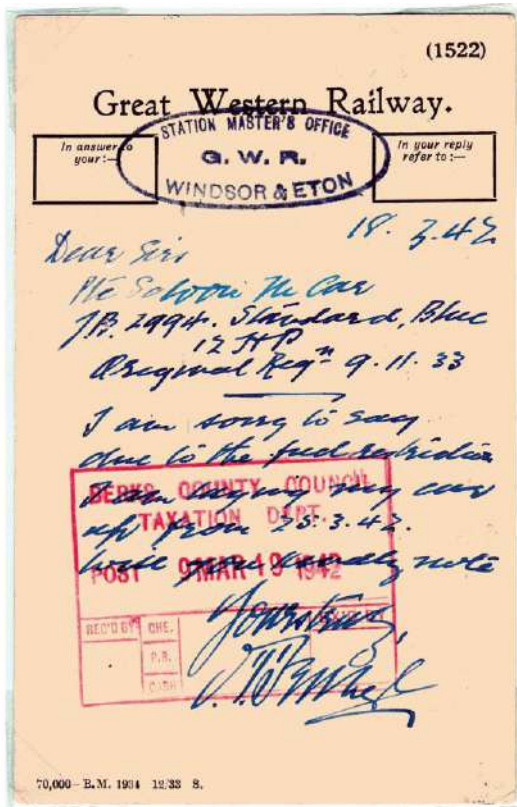 (1522)
Great Western Railway.
In answer to
your:—
STATION MASTER'S OFFICE
G. W. R.
WINDSOR & ETON
In your reply
refer to:—
18. 3. 42
Dear Sirs
Car
J.B. 2994. Standard, Blue
12 HP
Original Regn 9. 11. 33
I am sorry to say
due to the fuel restriction
I am laying my car
up from 25. 3. 42.
Will you kindly note
BERKS COUNTY COUNCIL
TAXATION DEPT.
POST 9 MAR 19 1942
REC'D BY CHE.
P.O.
CASH
Yours truly,
70,000—B.M. 1934 12/33 S.